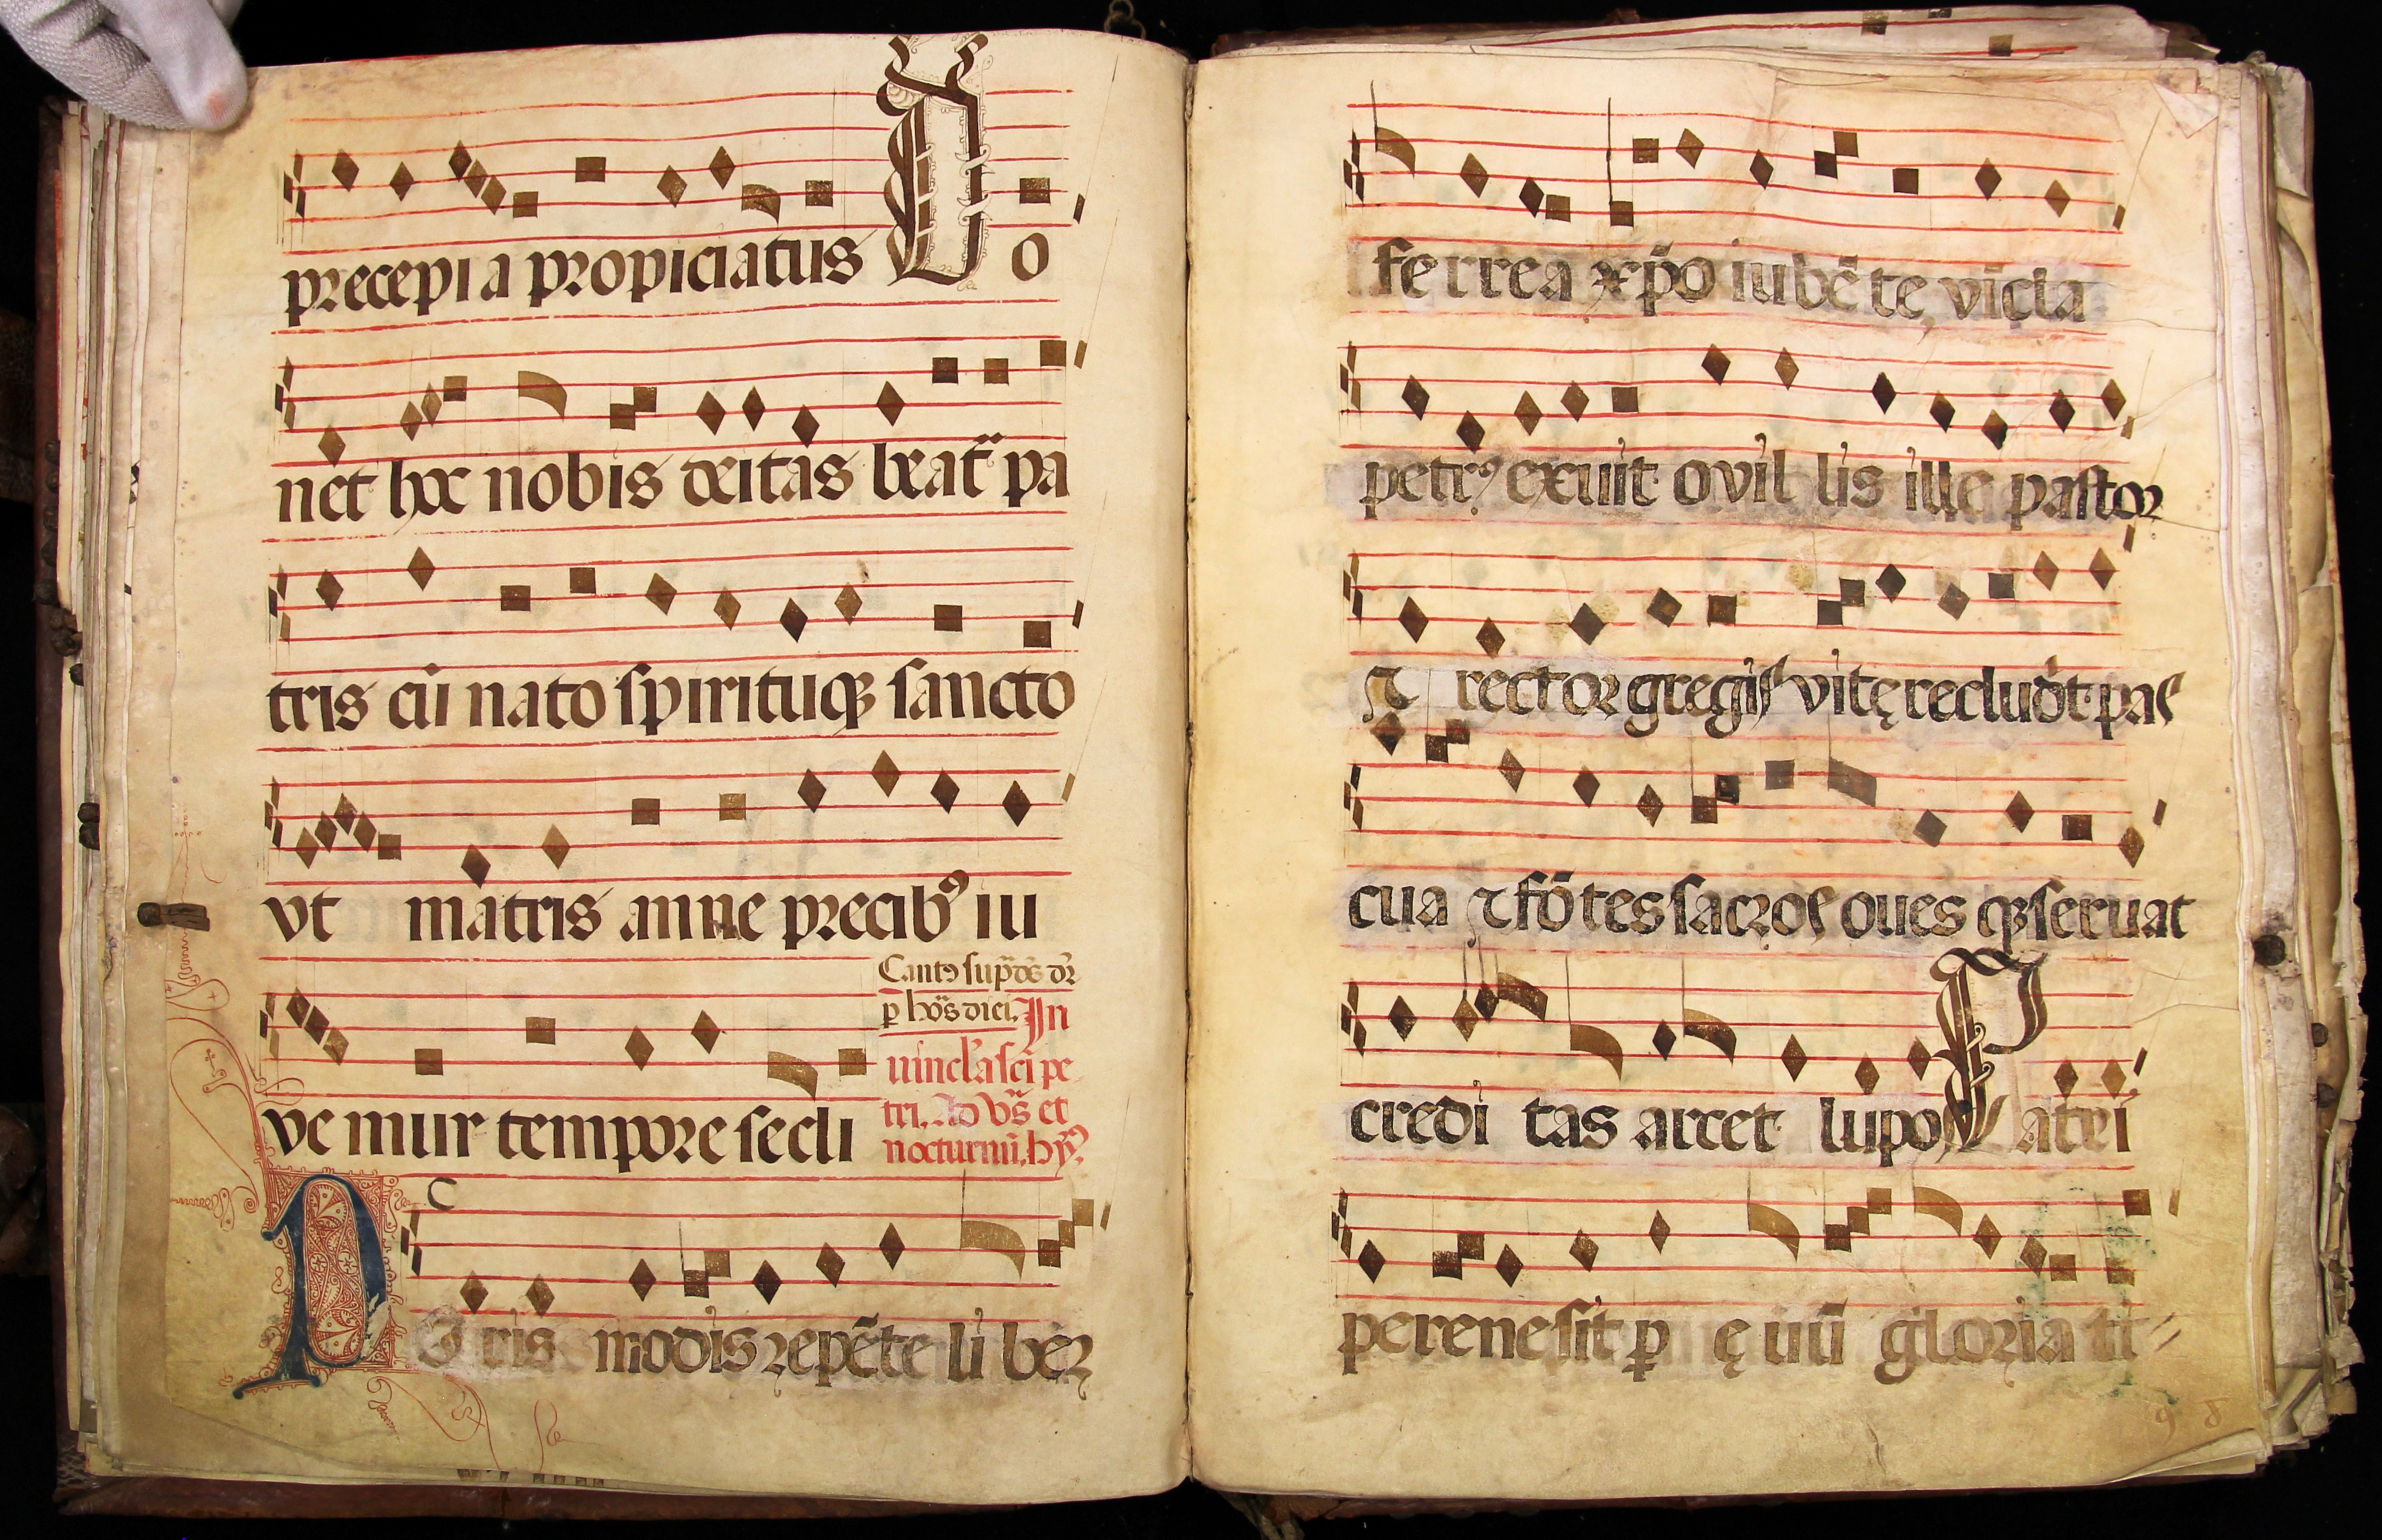 precepi a propiciatus D o
net hoc nobis deitas beat̄ pa
tris cū nato spirituqȝ sancto
vt matris anne precibꝰ iu
ve mur tempore secli
Cantꝰ sup̄
p hȳs dici. In
uincl'a sci pe
tri. Ad vs̄ et
nocturnū. hȳ
P E ris modis repēte li bēr
ferrea xp̄o iubēte, vicla
petrꝰ exuit ovil lis ille pastor
et rector gregis vitę recludit pas
cua et fōtes sacros oues qȝ seruat
credi tas arcet lupos P atri
perene sit p ę uū gloria ti
9 8